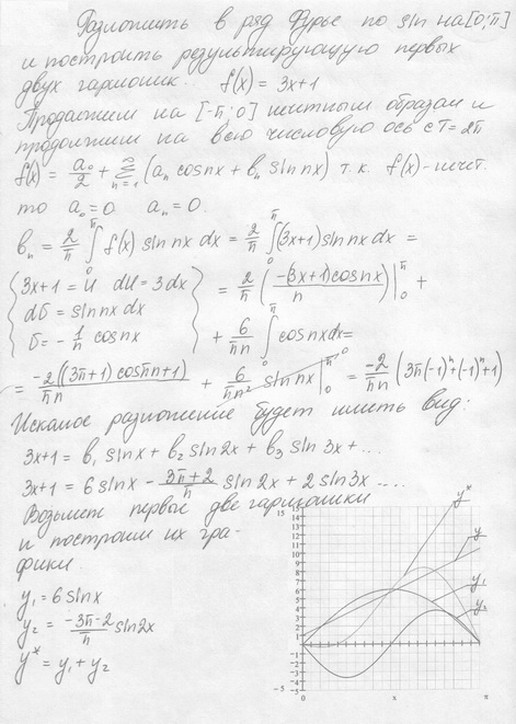 Разложить в ряд Фурье по sin на [0;π]
и построить результирующую первых
двух гармоник. f(x) = 3x+1
Продолжим на [-π; 0] нечетным образом и
продолжим на всю числовую ось с T=2π
f(x) = a₀/2 + ∑ₙ₌₁^∞ (aₙ cosnx + bₙ sinnx) т.к. f(x)-нечет.
то a₀=0 aₙ=0.
bₙ = 2/π ∫₀^π f(x) sin nx dx = 2/π ∫₀^π (3x+1) sin nx dx =
{3x+1 = u du = 3dx
dv = sinnx dx
v = -1/n cosnx}
= 2/π (-(3x+1)cosnx/n)|₀^π +
+ 6/πn ∫₀^π cosnxdx=
= -2((3π+1)cosπn+1)/πn + 6/πn² sinnx|₀^π ⁰ = -2/πn (3π(-1)ⁿ+(-1)ⁿ+1)
Искомое разложение будет иметь вид:
3x+1 = b₁ sinx + b₂ sin2x + b₃ sin 3x + ...
3x+1 = 6sinx - 3π+2/π sin2x + 2sin3x ....
Возьмем первые две гармоники
и построим их гра-
фики.
y₁ = 6sinx
y₂ = -3π-2/π sin2x
y* = y₁+y₂
y*
y
y₁
y₂
15 15
14
13
12
11
10
9
8
7
6
5
4
3
2
1
-1
-2
-3
-4
-5 -5
0 x π